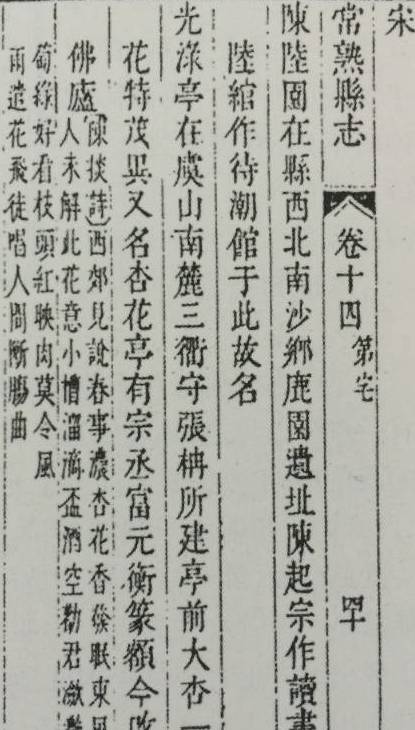 宋
常熟縣志 卷十四 第宅 四十
陳陸園在縣西北南沙鄉鹿園遺址陳起宗作讀書
陸綰作待潮館于此故名
光淥亭在虞山南麓三衢守張柟所建亭前大杏一
花特茂異又名杏花亭有宗丞富元衡篆額今改
佛廬陳掞詩西郊見說春事濃杏花香𠋫眠東風
人未解此花意小檜溜滴盃酒空勸君瀲灧
萄綠好看枝頭紅映肉莫令風
雨遣花飛徒唱人間斷腸曲